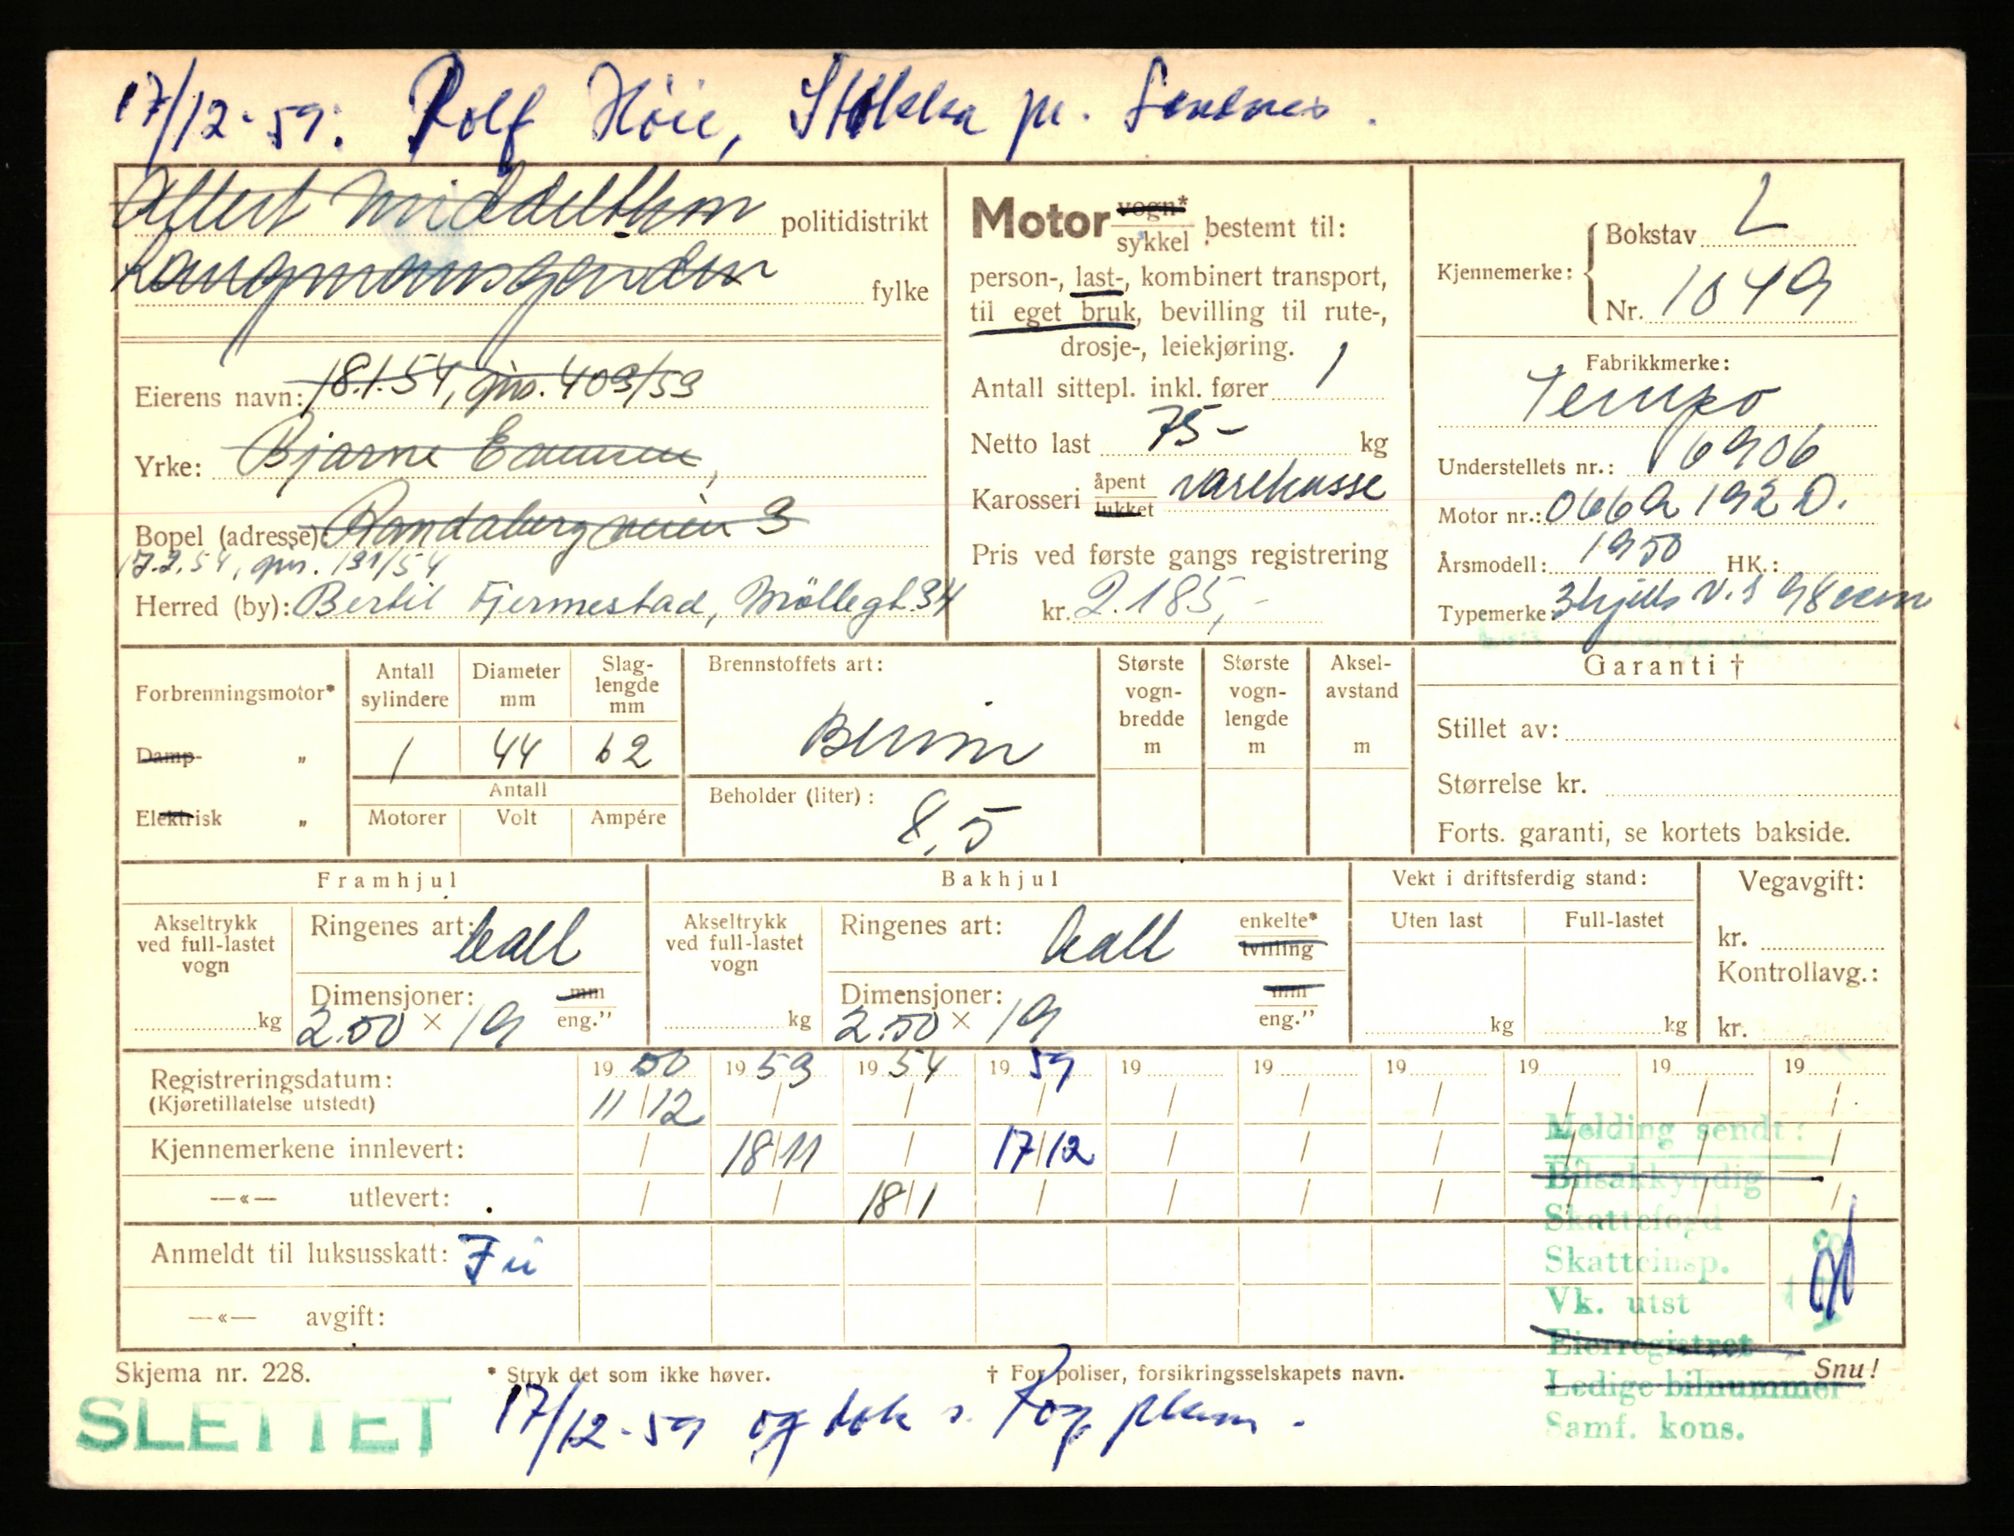 17/12-59. Rolf Höie, Stokka pr. Sandnes.
Middelthon politidistrikt
Langmannsgarden fylke
Eierens navn: 18.1.54, gjns. 409/53
Yrke: Bjarne
Bopel (adresse): Randabergveien 3
17.2.54, gjns. 191/54
Herred (by): Bertil Fjermestad, Möllegt. 34
Motor vogn* sykkel bestemt til:
person-, last-, kombinert transport,
til eget bruk, bevilling til rute-,
drosje-, leiekjøring.
Antall sittepl. inkl. fører 1
Netto last 75- kg
Karosseri åpent lukket varekasse
Pris ved første gangs registrering
kr. 2.185,-
Kjennemerke: Bokstav L
Nr. 1049
Fabrikkmerke:
Tempo
Understellets nr.: 16906
Motor nr.: 066a 192 D.
Årsmodell: 1950 HK.:
Typemerke: 3hjuls v.s 98 ccm
Forbrenningsmotor*
Damp- „
Elektrisk „
Antall sylindere Diameter mm Slaglengde mm
1 44 62
Antall
Motorer Volt Ampére
Brennstoffets art:
Bensin
Beholder (liter):
8,5
Største vogn-bredde m
Største vogn-lengde m
Aksel-avstand m
Garanti †
Stillet av:
Størrelse kr.
Forts. garanti, se kortets bakside.
Framhjul
Akseltrykk ved full-lastet vogn
kg
Ringenes art: ball
Dimensjoner: mm
2.50 × 19 eng.”
Bakhjul
Akseltrykk ved full-lastet vogn
kg
Ringenes art: ball enkelte* tvilling
Dimensjoner: mm
2.50 × 19 eng.”
Vekt i driftsferdig stand:
Uten last Full-lastet
kg kg
Vegavgift:
kr.
Kontrollavg.:
kr.
Registreringsdatum: 1950 1953 1954 1959 19 19 19 19 19 19
(Kjøretillatelse utstedt) 11/12 / / / / / / / / /
Kjennemerkene innlevert: / 18/11 / 17/12 / / / / / /
—«— utlevert: / / 18/1 / / / / / / /
Anmeldt til luksusskatt: Fri
—«— avgift:
Melding sendt:
Bilsakkyndig
Skattefogd
Skatteinsp.
Vk. utst
Eierregistret
Ledige bilnummer
Samf. kons.
Skjema nr. 228. * Stryk det som ikke høver. † For poliser, forsikringsselskapets navn. Snu!
SLETTET 17/12-59